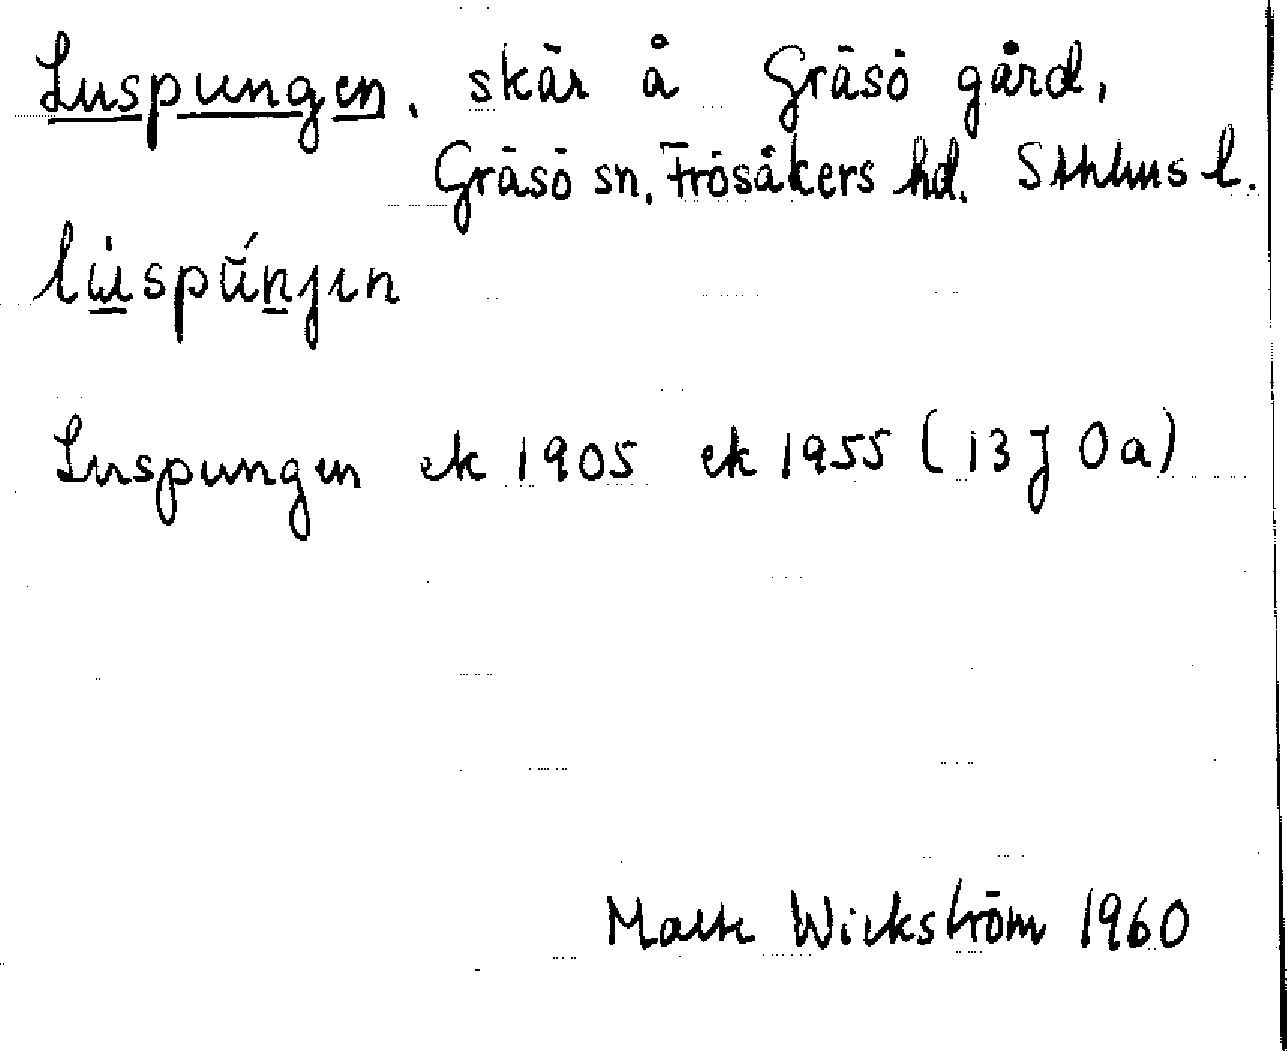 Luspungen, skär å Gräsö gård,
Gräsö sn. Frösåkers hd. Sthlms l.
Luspungen ek 1905 ek 1955 (13J 0a)
Malte Wickström 1960